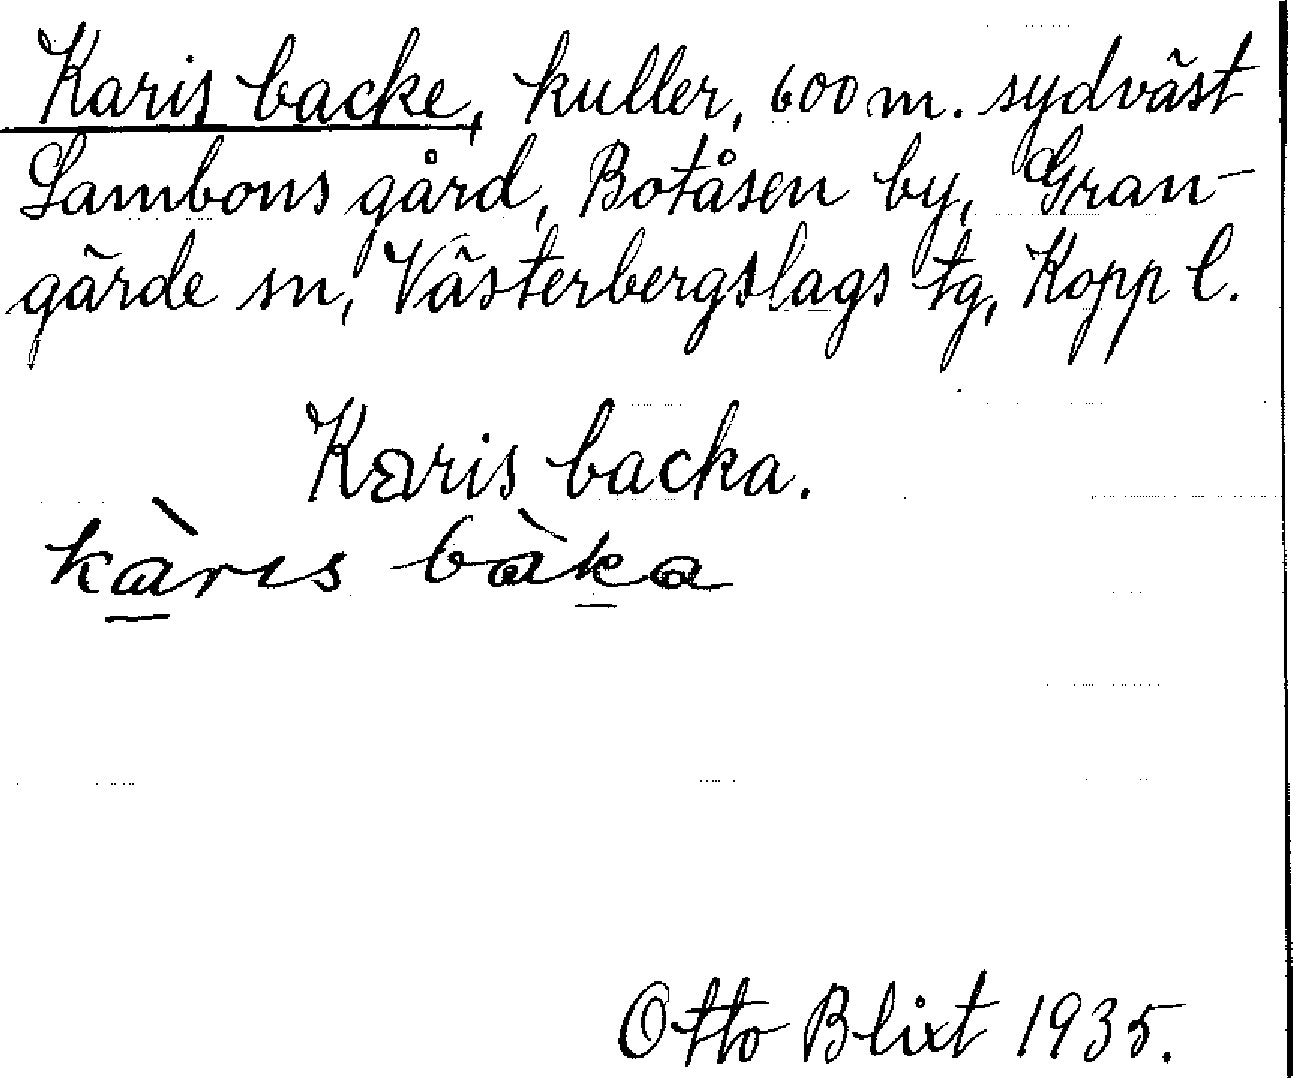 Karis backe, kuller, 600 m. sydväst
Lambons gård, Botåsen by, Gran-
gärde sn, Västerbergslags tg, Kopp l.
Karis backa.
kàris bàka
Otto Blixt 1935.